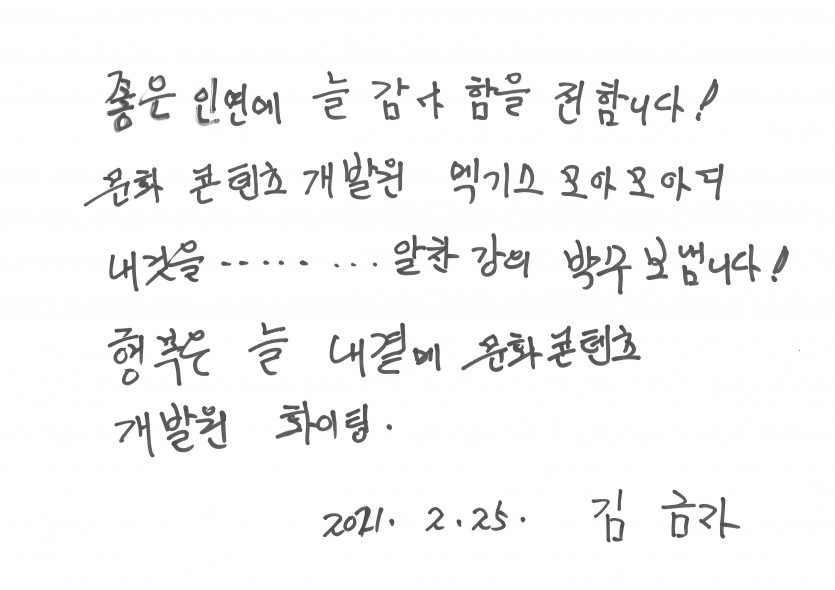 좋은 인연에 늘 감사 함을 전합니다!
문화 콘텐츠 개발원 엑기스 모아모아서
내것을 ········ 알찬 강의 박수 보냅니다!
행복은 늘 내곁에 문화콘텐츠
개발원 화이팅.
2021. 2. 25. 김 금자